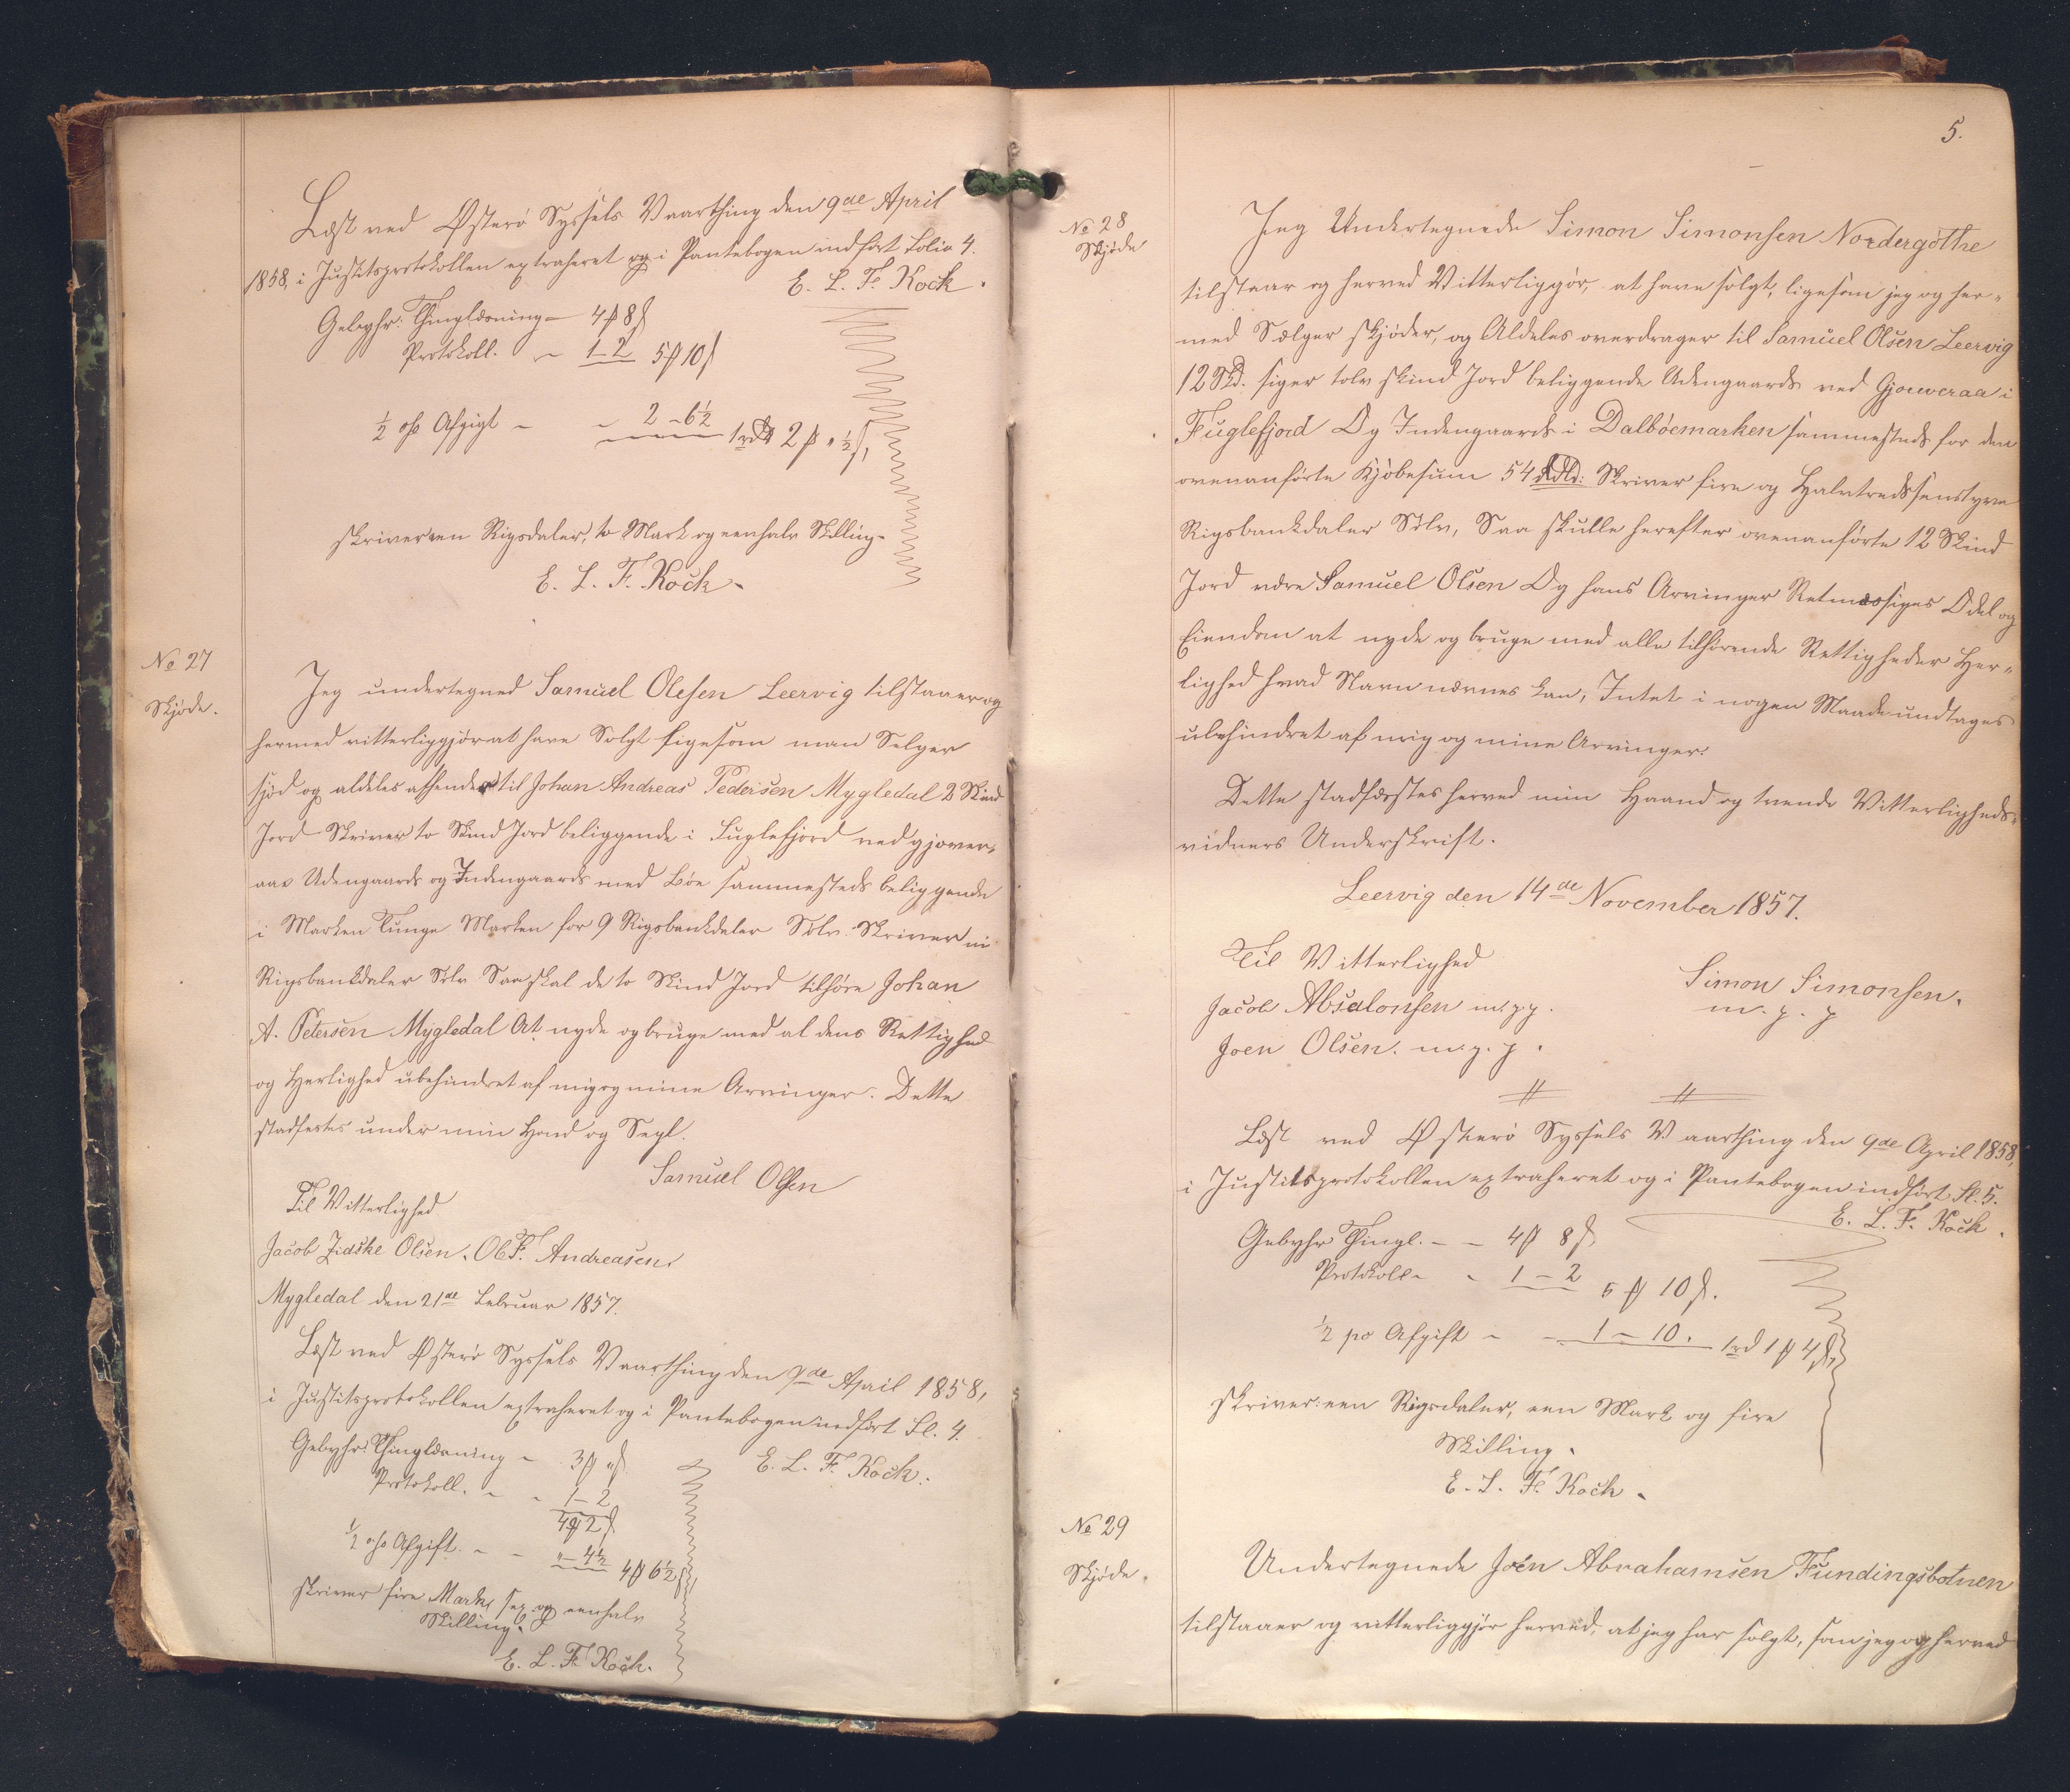 Læst ved Østerø Syssels Vaarthing den 9de April
1858, i Justitsprotokollen extraheret og i Pantebogen indført Folio 4.
E. L. F. Kock.
Gebyhr: Thinglæsning – 4 ß 8 s
Protokoll. – 1 – 2 5 10
½ o/o Afgigt – – 2 – 6½
1 rd 2 " ½
skriver een Rigsdaler, to Mark og eenhalv Skilling –
E. L. F. Kock –
No 27
Skjøde.
Jeg undertegned Samuel Olesen Leervig tilstaaer og
hermed vitterliggjør at have Solgt ligesom man Selger
sjød og aldeles afhender til Johan Andreas Pedersen Mygledal 2 Skind
Jord Skriver to Skind Jord beliggende i Fuglefjord ved gjover-
aae Udengaards og Indengaards med Bøe sammesteds beliggende
i Marken Tunge Marken for 9 Rigsbankdaler Sølv Skriver ni
Rigsbankdaler Sølv Saa skal de to Skind Jord tilhøre Johan
A. Petersen Mygledal At nyde og bruge med al dens Rettighed
og Herlighed ubehindret af mig og mine Arvinger. Dette
stadfestes under min Hond og Segl.
Samuel Olsen
Til Vitterlighed
Jacob Zidske Olsen. Ole F. Andreasen.
Mygledal den 21de Februar 1857.
Læst ved Østerø Syssels Vaarthing den 9de April 1858,
i Justitsprotokollen extraheret og i Pantebogen indført Fl. 4.
E. L. F. Kock.
Gebyhr: Thinglæsning – 3 "
Protokoll. – – 1 – 2
4 2
½ o/o Afgift. – – " – 4½ 4 6½
skriver fire Mark, sex og eenhalv
Skilling.
E. L. F. Kock.
5.
No 28
Skjøde
Jeg Undertegnede Simon Simonsen Nordergøthe
tilstaar og herved Vitterliggør, at have solgt, ligesom jeg og her-
med Sælger skjøder, og Aldeles overdrager til Samuel Olsen Leervig
12 Skd. siger tolv skind Jord beliggende Udengaards ved Gjouveraa i
Fuglefjord Og Indengaards i Dalbøemarken sammesteds for den
ovenanførte Kjøbesum 54 Rdlr: Skriver fire og Halvtredssenstyve
Rigsbankdaler Sølv, Saa skulle herefter ovenanførte 12 Skind
Jord være Samuel Olsen Og hans Arvinger Retmæssiges Odel og
Eiendom at nyde og bruge med alle tilhørende Rettigheder Her-
lighed hvad Navn nævnes kan, Intet i nogen Maade undtages
ubehindret af mig og mine Arvinger.
Dette stadfæstes herved min Haand og tvende Vitterligheds-
vidners Underskrift.
Leervig den 14de November 1857.
Til Vitterlighed
Simon Simonsen.
m. p. p
Jacob Absalonsen m.p.p.
Joen Olsen. m.p.p.
Læst ved Østerø Syssels Vaarthing den 9de April 1858,
i Justitsprotokollen extraheret og i Pantebogen indført Fl. 5.
E. L. F. Kock.
Gebyhr Thingl. – – 4 8
Protokoll – – 1 – 2 5 10
½ po Afgift – – 1 – 10. 1 rd 1 4
skriver: een Rigsdaler, een Mark og fire
Skilling.
E. L. F. Kock.
No 29
Skjøde.
Undertegnede Joen Abrahamsen Fundingsbotnen
tilstaaer og vitterliggjør herved, at jeg har solgt, som jeg og herved